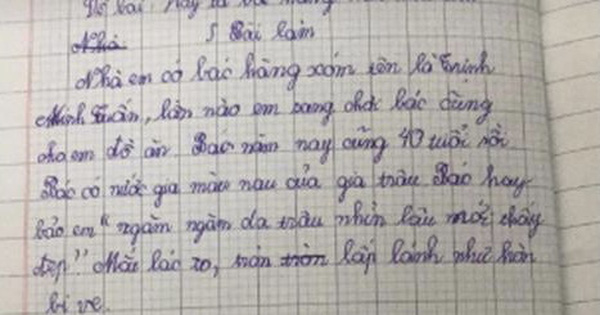 Đề bài: Hãy tả
Nhà
Bài làm
Nhà em có bác hàng xóm tên là Trịnh
Minh Tuấn, lần nào em sang chơi bác cũng
cho em đồ ăn. Bác năm nay cũng 40 tuổi rồi
Bác có nước gia màu nau của gia trâu Bác hay
bảo em "ngăm ngăm da trâu nhìn lâu mới thấy
đẹp" Mắt bác to, tròn tròn lấp lánh như hòn
bi ve.